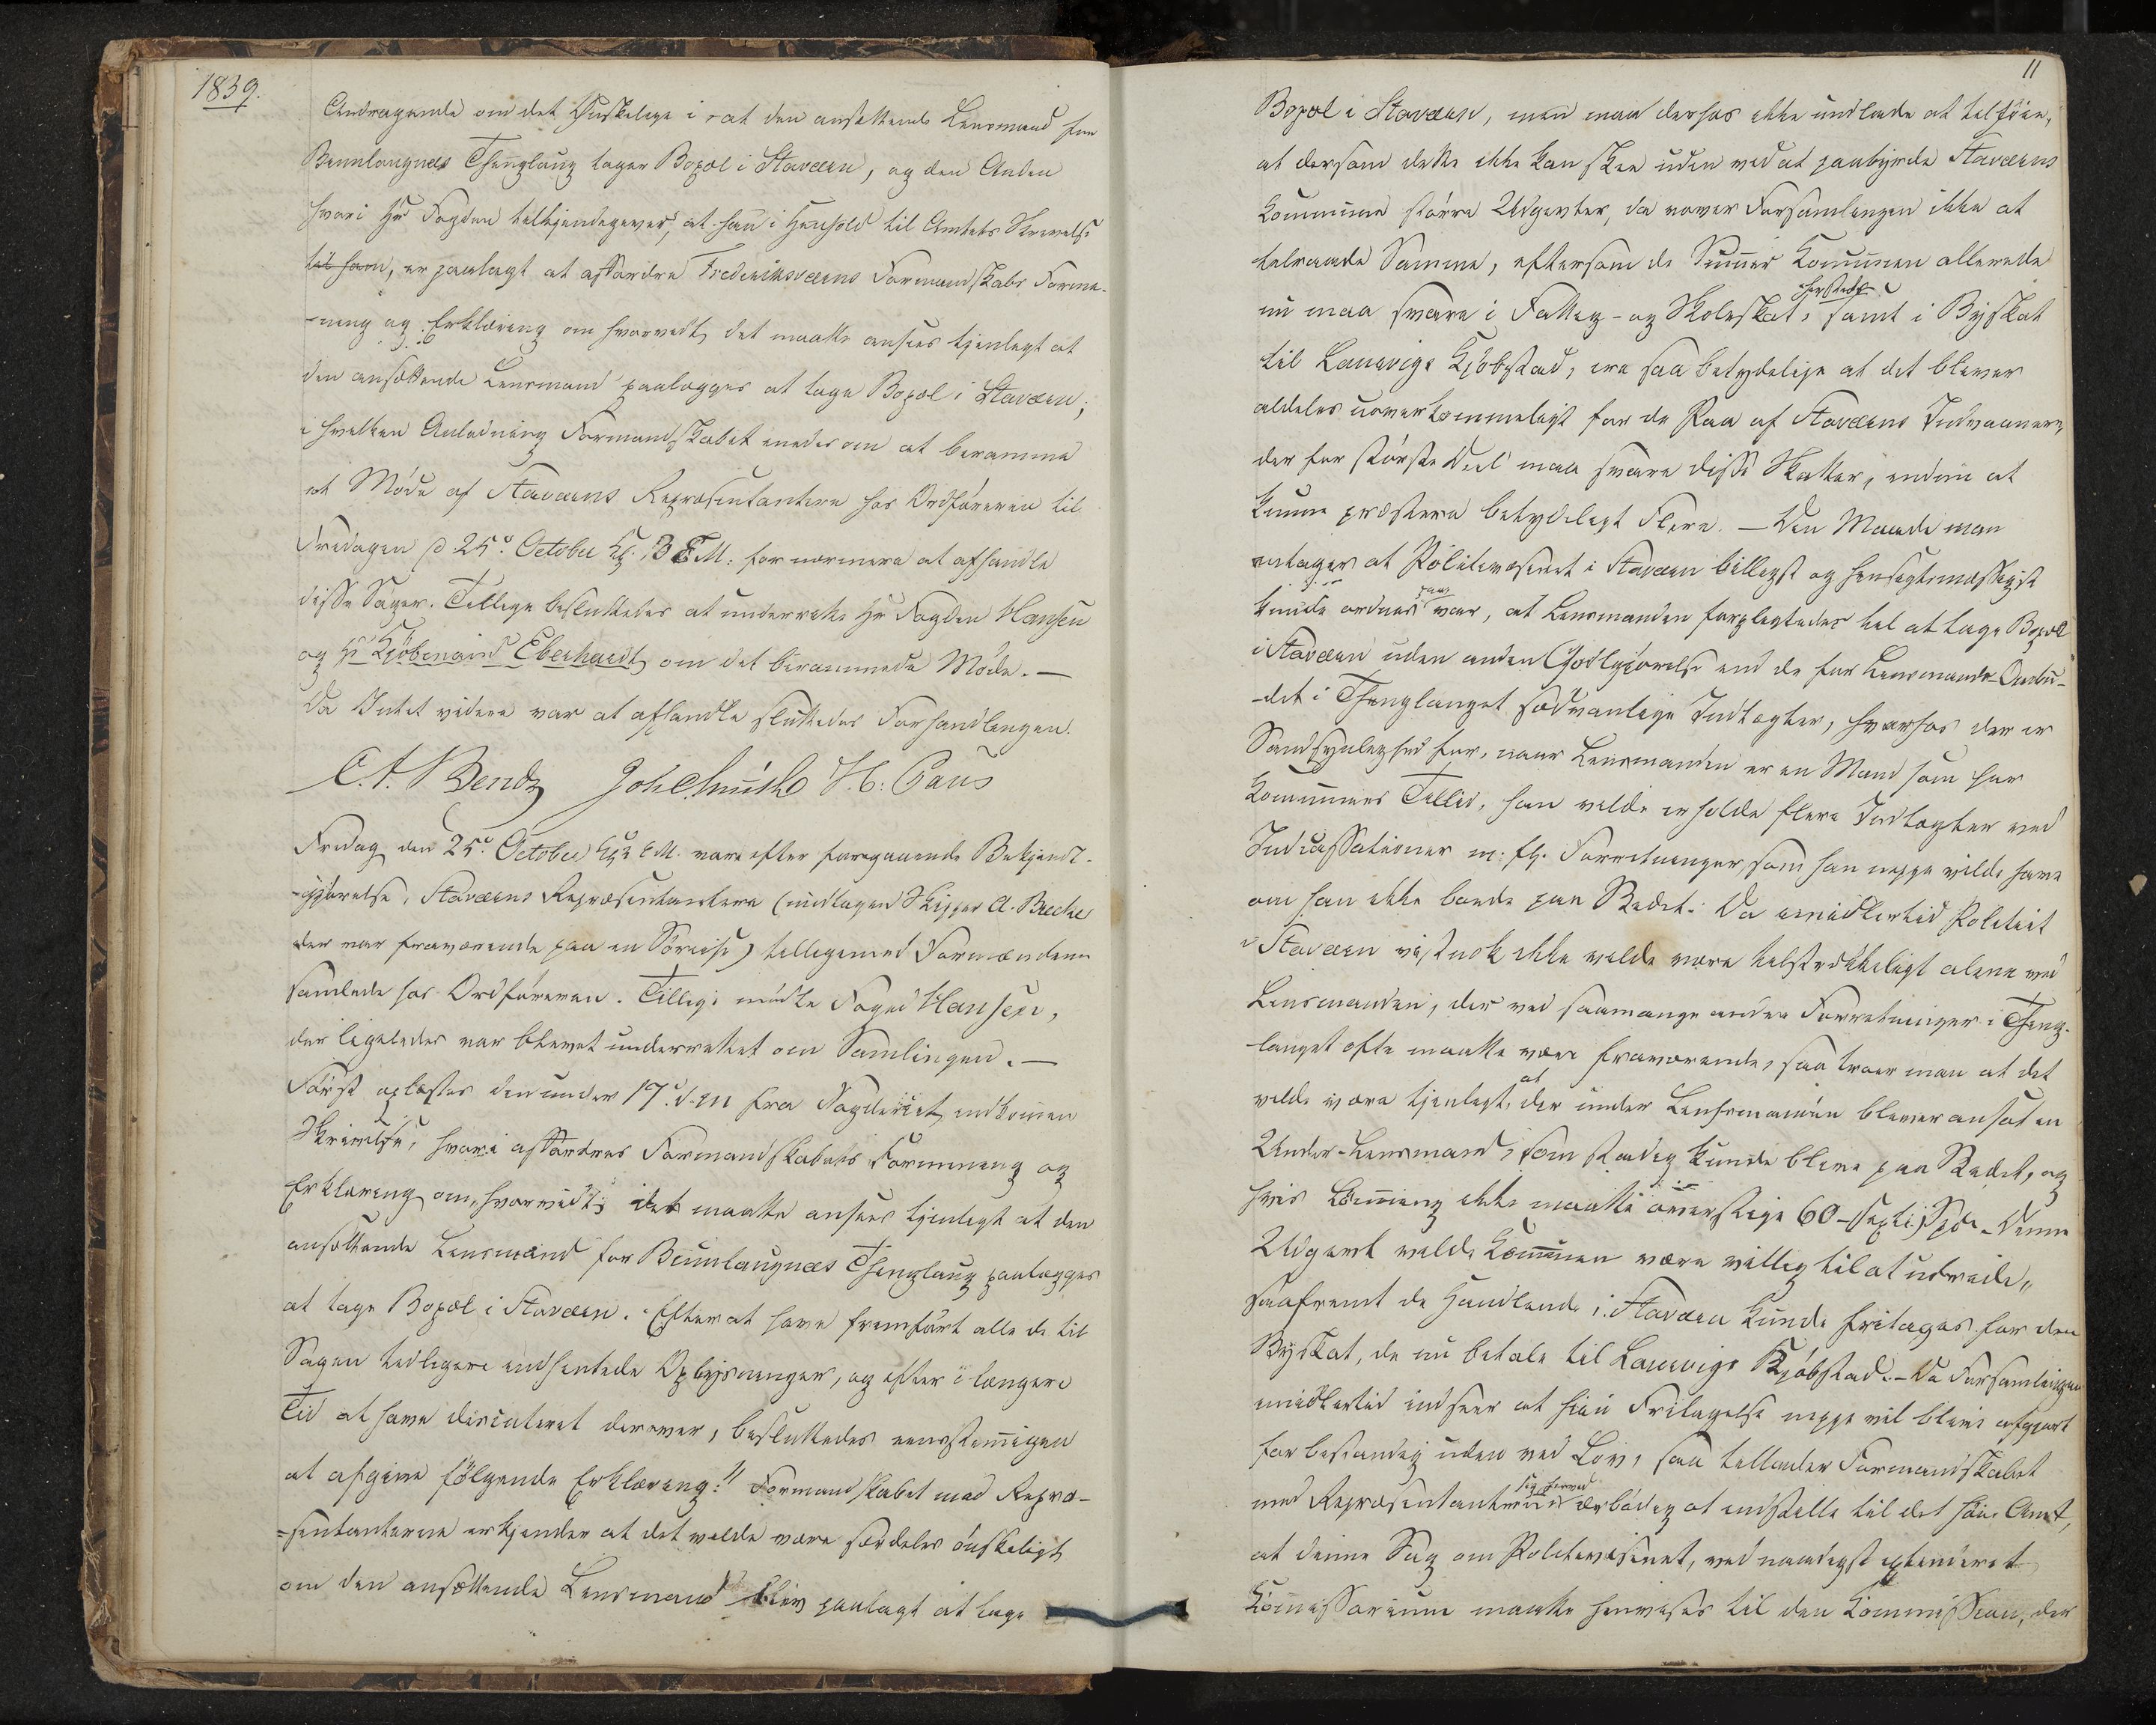 1839.
Andragende om det Ønskelige i at den ansættende Lensmand for
Brunlaugnæs Thinglaug tager Bopæl i Staværn, og den Anden
hvori Hr Fogden tilkjendegiver, at han i Henhold til Amtets Skrivelse
til ham, er paalagt at affordre Frederiksværns Formandskabs Forme-
-ning og Erklæring om hvorvidt det maatte ansees tjenligt at
den ansættende Lensmand paalægges at tage Bopæl i Staværn;
i hvilken Anledning Formandskabet enedes om at beramme
et Møde af Staværns Repræsentantere hos Ordføreren til
Fredagen d 25de October Kl. 3 E.M. for nærmere at afhandle
disse Sager. Tillige besluttedes at underrette Hr Fogden Hansen
og Hr Kjøbmand Eberhardt om det berammede Møde. —
Da Intet videre var at afhandle sluttedes Forhandlingen.
C. A. Bendz Joh Smith H. C. Paus
Fredag den 25de October Kl. E.M. vare efter foregaaende Bekjendt-
-gjørelse, Staværns Repræsentantere (undtagen Skipper A. Breche
der var fraværende paa en Søreise) tilligemed Formændene
samlede hos Ordføreren. Tillige mødte Foged Hansen,
der ligeledes var blevet underrettet om Samlingen. —
Først oplæstes den under 17de d. M. fra Fogderiet indkomne
Skrivelse, hvori affordres Formandskabets Formening og
Erklæring om, hvorvidt det maatte ansees tjenligt at den
ansættende Lensmand for Brunlaugnæs Thinglaug paalægges
at tage Bopæl i Staværn. Efter at have fremført alle de til
Sagen tidligere indhentede Oplysninger, og efter i længere
Tid at have discuteret derover, besluttedes eenstemmigen
at afgive følgende Erklæring: "Formandskabet med Repræ-
=sentanterne erkjender at det vilde være særdeles ønskeligt
om den ansættende Lensmand blev paalagt at tage
11
Bopæl i Staværn, men maa derhos ikke undlade at tilføie,
at dersom dette ikke kan skee uden ved at paabyrde Staværns
Kommune større Udgivter, da vover Forsamlingen ikke at
tilraade Samme, eftersom de Summer Kommunen allerede
nu maa svare i Fattig- og Skoleskat, herstedts samt i Byskat
til Laurvigs Kjøbstad, ere saa betydelige at det bliver
aldeles uoverkommeligt for de Faa af Staværns Indvaanere,
der for største Deel maa svare disse Skatter, endnu at
kunne præstere betydeligt Flere. — Den Maade man
antager at Politivæsenet i Staværn billigst og hensigtsmæssigst
kunde ordnes paa var, at Lensmanden forpligtedes til at tage Bopæl
i Staværn uden anden Godtgjørelse end de for Lensmands-Ombu-
-det i Thinglauget sædvanlige Indtægter, hvorhos der er
Sandsynlighed for, naar Lensmanden er en Mand som har
Kommunens Tillid, han vilde erholde flere Indtægter ved
Indcassationer m. fl. Forretninger, som han neppe vilde have
om han ikke boede paa Stedet. Da imidlertid Politiet
i Staværn vistnok ikke vilde være tilstrækkeligt alene ved
Lensmanden, der ved saamange andre Forretninger i Thing-
lauget ofte maatte være fraværende, saa troer man at det
vilde være tjenligt, at der under Lensmanden bliver ansat en
Under-Lensmand, som stadig kunde blive paa Stedet, og
hvis Lønning ikke maatte overstige 60 - sexti Spd. - Denne
Udgivt vilde Kommunen være villig til at udrede,
saafremt de Handlende i Staværn kunde fritages for den
Byskat, de nu betale til Laurvigs Kjøbstad. - Da Forsamlingen
imidlertid indseer at hiin Fritagelse neppe vil blive afgjort
for bestandig uden ved Lov, saa tillader Formandskabet
med Repræsentanterne sig herved ærbødig at indstille til det høie Amt,
at denne Sag om Politivæsenet, ved naadigst extenderet
Commissorium maatte henvises til den Kommission, der